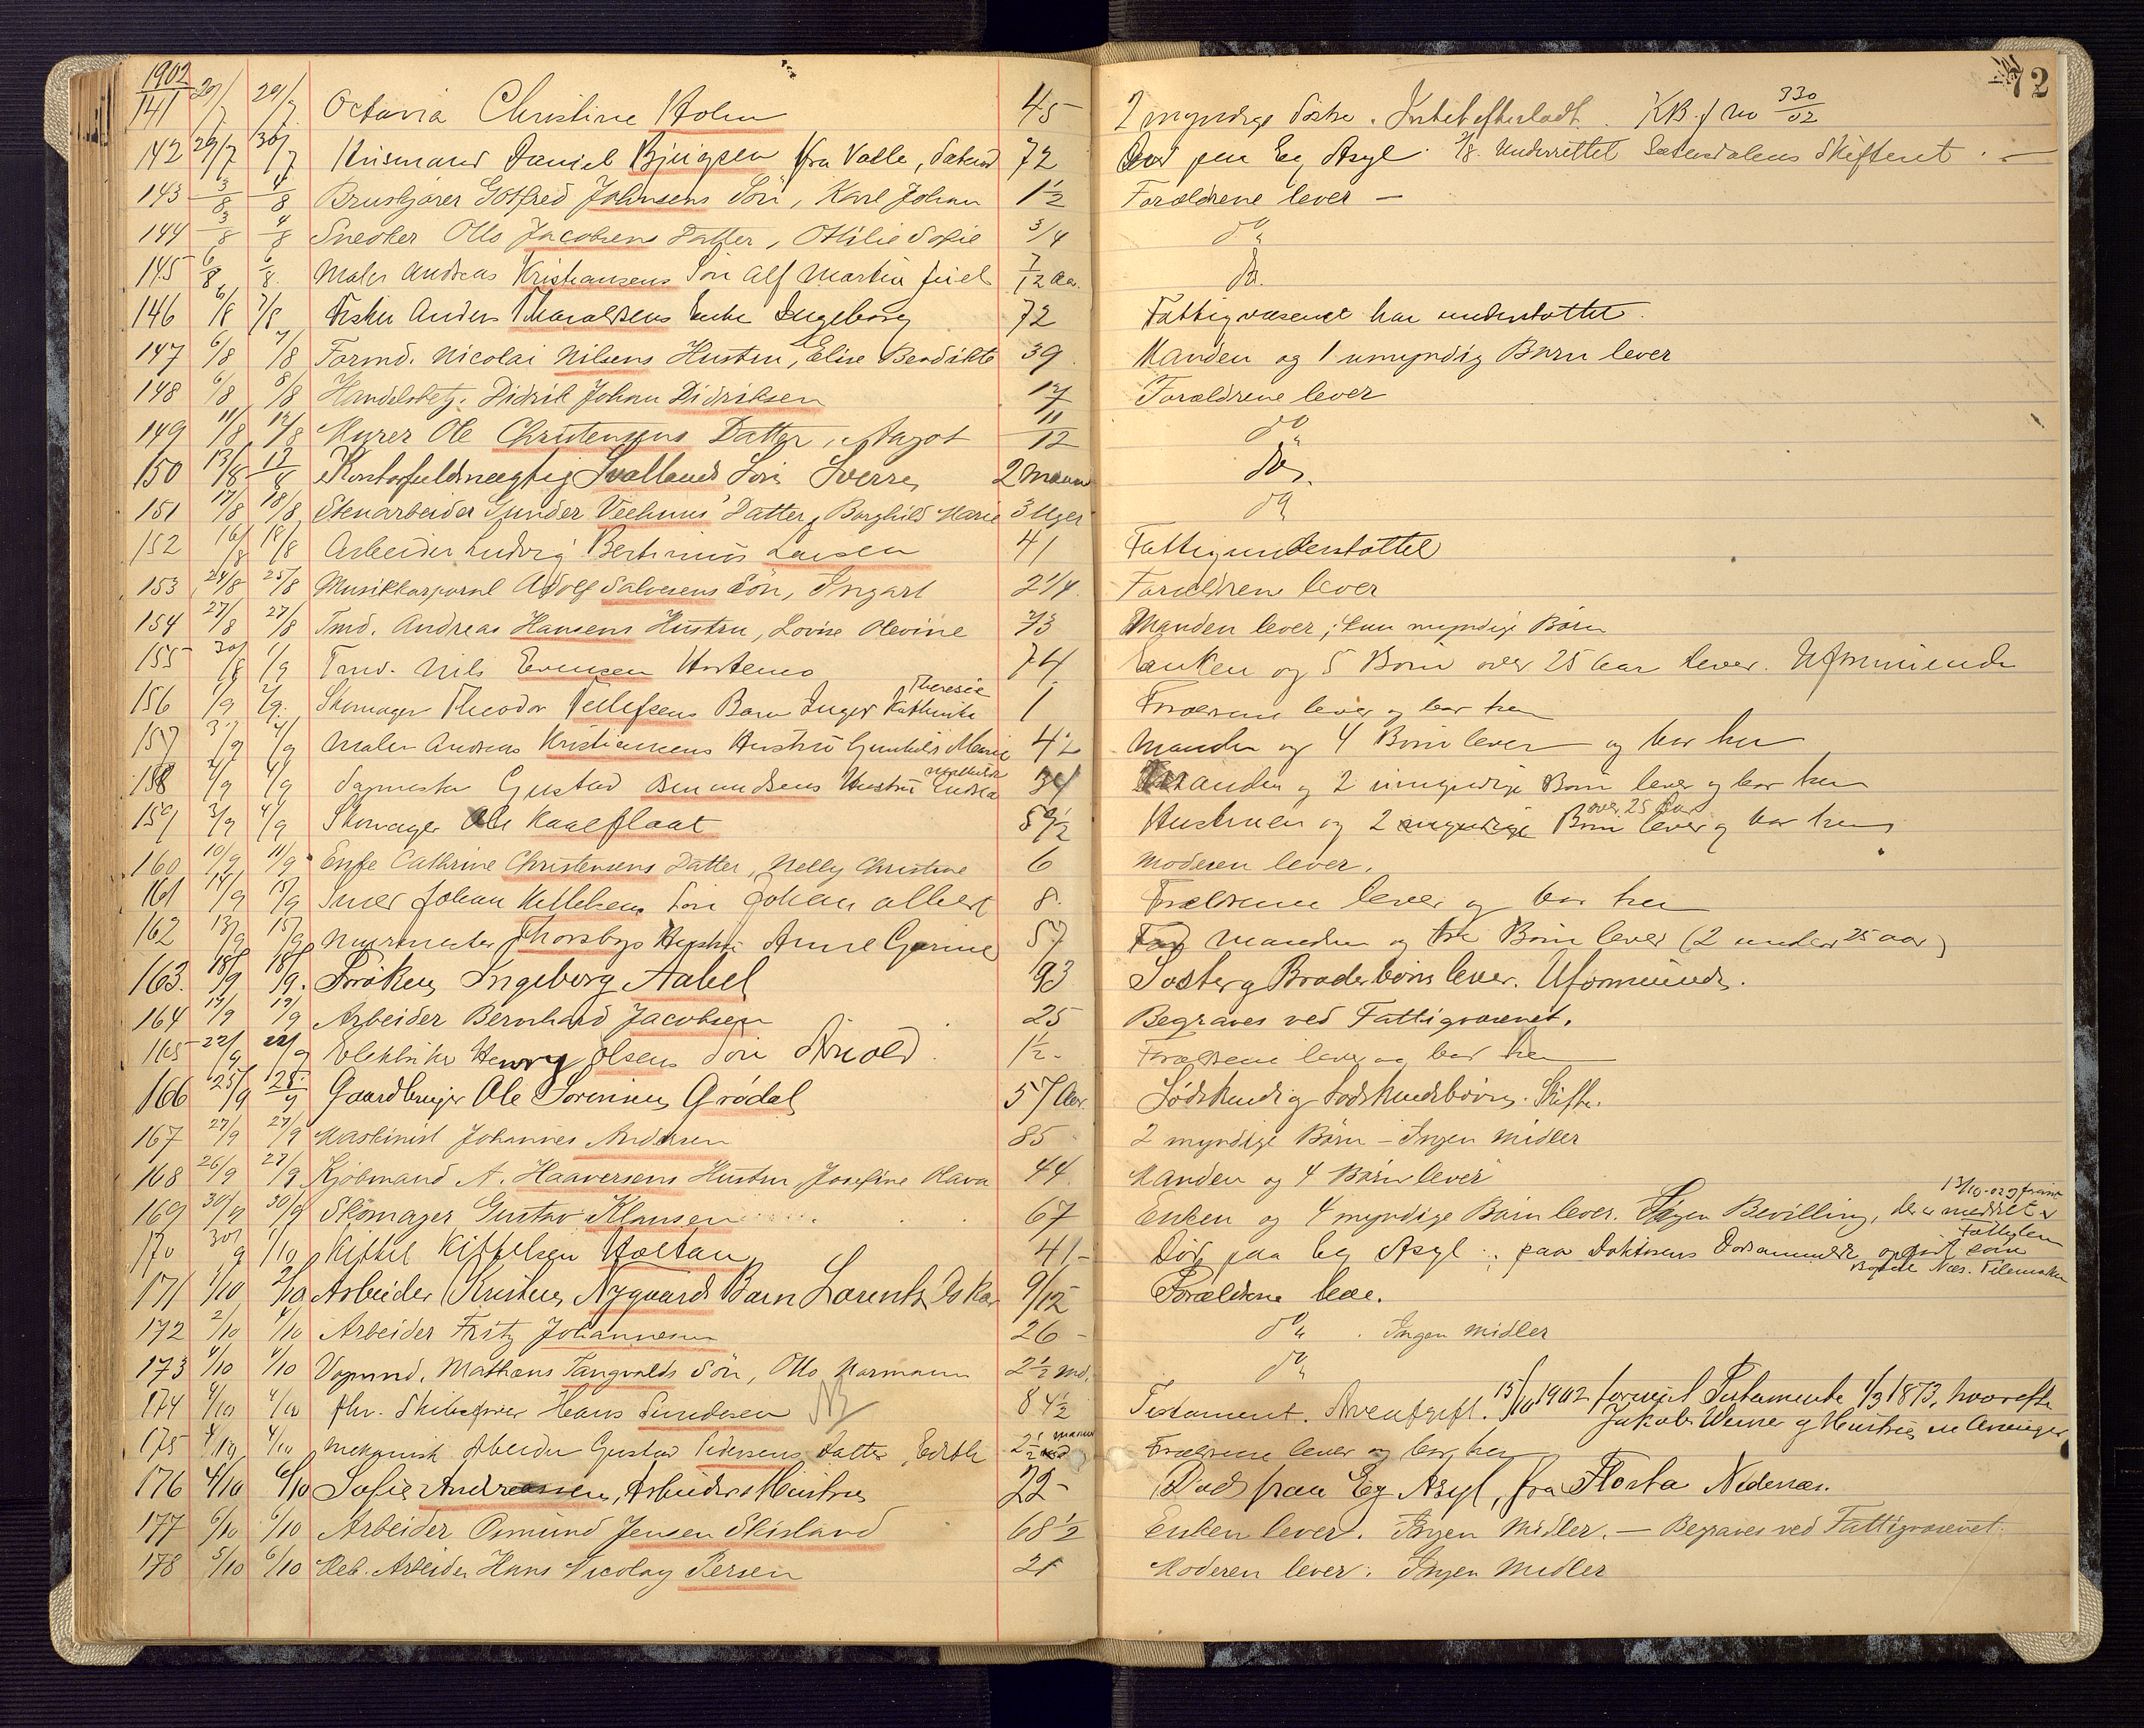 1902 72
141 29/7 29/7 Octavia Christine Holm 45 2 myndige Søstre. Intet efterladt. KB. f no 330/02
142 29/7 30/7 Husmand Daniel Bjugsen fra Valle, 72 Død paa Eg Asyl. Underrettet Sætersdalens Skifteret. —
143 3/8 4/8 Gotfred Johnsens Søn, Karl Johan 1 1/2 Forældrene lever —
144 3/8 4/8 Snedker Otto Jacobsens Datter, Othilie Sofie 3/4 do
145 6/8 6/8. Maler Andreas Kristiansens Søn Alf Martin Juel 7/12 Aa. do.
146 6/8 7/8 Fisker Anders Tharaldsens Enke Ingeborg 72 Fattigvæsenet har understøttet.
147 6/8 7/8 Formd. Nicolai Nilsens Hustru, Elise Bendikte 39 Manden og 1 umyndig Barn lever
148 6/8 8/8 Handelsbetj. Didrik Johan Didriksen 17 Forældrene lever
149 11/8 12/8 Murer Ole Christensens Datter, Aagot 11/12 do
150 13/8 13/8 Kontorfuldmægtig Svallands Søn Sverre 2 Maan do.
151 17/8 18/8 Stenarbeider Gunder Veehuus' Datter, Borghild Marie 3 Uger do
152 16/8 18/8 Arbeider Ludvig Bertinius Larsen 41 Fattigunderstøttet
153 24/8 25/8 Musikkorporal Adolf Salvesens Søn, Ingart 2 1/4. Forældrene lever
154 27/8 27/8 Tmd. Andreas Hansens Hustru, Lovise Olevine 73 Manden lever; kun myndige Børn
155 30/8 1/9 Tmd. Nils Evensen 74. Enken og 5 Børn over 25 Aar lever. Uformuende
156 1/9 2/9. Skomager Theodor Tellefsens Barn Inger Kathinka Theresie 1 Forældrene lever og bor her
157 3/9 4/9 Maler Andreas Kristiansens Hustru Gunhild Marie 42 Manden og 4 Børn lever og bor her
158 2/9 4/9 Gustav Hustru Mathilde Endrea 34 Manden og 2 umyndige Børn lever og bor her
159 3/9 4/9 Skomager Ole Kaalflaat 59 1/2 Hustruen og 2 Børn over 25 Aar lever og bor her
160 10/9 11/9 Enke Cathrine Christensens Datter, Nelly Christine 6 Moderen lever.
161 14/9 15/9 Johan Søn Johan Albert 8. Forældrene lever og bor her
162 13/9 15/9 Murmester Thorsbys Hustru Anne Gurine 57 Manden og tre Børn lever (2 under 25 aar)
163. 18/9 18/9. Frøken Ingeborg Aabel 93 Søster og Broderbørn lever. Uformuende.
164 17/9 19/9 Arbeider Bernhard Jacobsen 25 Begraves ved Fattigvæsenet.
165 22/9 22/9 Elektriker Henry Olsens Søn Arnold. 1 1/2. Forældrene lever og bor her
166 25/9 25/9 Gaardbruger Ole Sørinius Grødal 57 Aar. Sødskend og Sødskendebørn. Skifte.
167 27/9 27/9 Maskinist Johannes Andersen 85 2 myndige Børn — Ingen Midler
168 26/9 27/9 Kjøbmand A. Haaversens Hustru, Josefine Olava 44. Manden og 4 Børn lever
169 30/9 30/9 Skomager Gustav Klausen 67 Enken og 4 myndige Børn lever. Bevilling, der er meddelt
170 30/9 1/10 Kittel Kittelsen Holtan 41 – Død paa Eg Asyl; paa Doktorens opgivet som
171 1/10 2/10 Arbeider Kristen Nygaards Barn Lorentz Oskar 9/12 Forældrene leve.
172 2/10 4/10 Arbeider Fritz Johannesen 26 – do. Ingen Midler
173 4/10 4/10 Vognmd. Mathæus Tangvalds Søn, Otto Normann 2 1/2 md. do
174 4/10 4/10 fhv. Skibsfører Hans Gundersen NB 84 1/2 Testament. Arveafgift. 15/10 1902 Testamente 1/3 1873, hvorefter
Jakob Werner og Hustru ere Arvinger
175 4/10 4/10 Mekanisk Arbeider Gustav Pedersens Datter, Edith 2 1/2 Maaned Forældrene lever og bor her
176 4/10 6/10 Sofie Andreassen, Arbeiders Hustru 22 – Død paa Eg Asyl, fra Flosta Nedenæs.
177 6/10 6/10 Arbeider Osmund Jensen Skisland 68 1/2 Enken lever. Ingen Midler. — Begraves ved Fattigvæsenet.
178 5/10 6/10 Meb. Arbeider Hans Nicolay Persen 21 Moderen lever. Ingen Midler